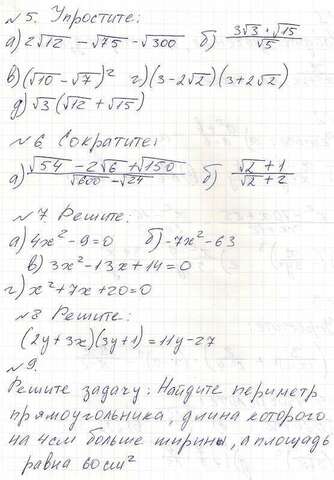 №5. Упростите:
а) 2√12 - √75 - √300 б) 3√3 · √15 / √5
в) (√10 - √7)² г) (3-2√2)(3+2√2)
д) √3 (√12 + √15)
№6 Сократите:
а) √54 - 2√6 + √150 / √600 - √24 б) √2 + 1 / √2 + 2
№7 Решите:
а) 4x² - 9 = 0 б) -7x² - 63
в) 3x² - 13x + 14 = 0
г) x² + 7x + 20 = 0
№8 Решите:
(2y + 3x)(3y + 1) = 11y - 27
№9.
Решите задачу: Найдите периметр
прямоугольника, длина которого
на 4см больше ширины, а площадь
равна 60см²